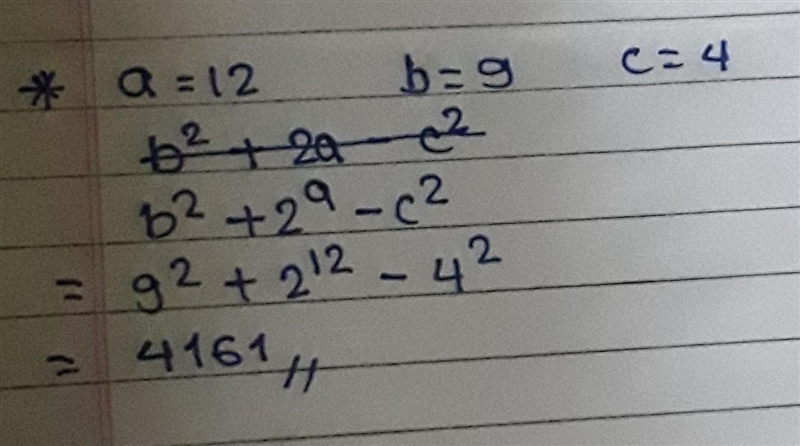 * a = 12 b = 9 c = 4
b² + 2a - c²
b² + 2ᵃ - c²
= 9² + 2¹² - 4²
= 4161 //